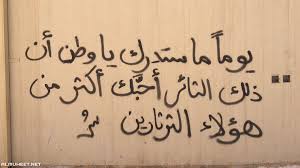 يوماً ما ستدرك يا وطن أن
ذلك الثائر أحبّك أكثر من
هؤلاء الثرثارين
ALMUHEET.NET